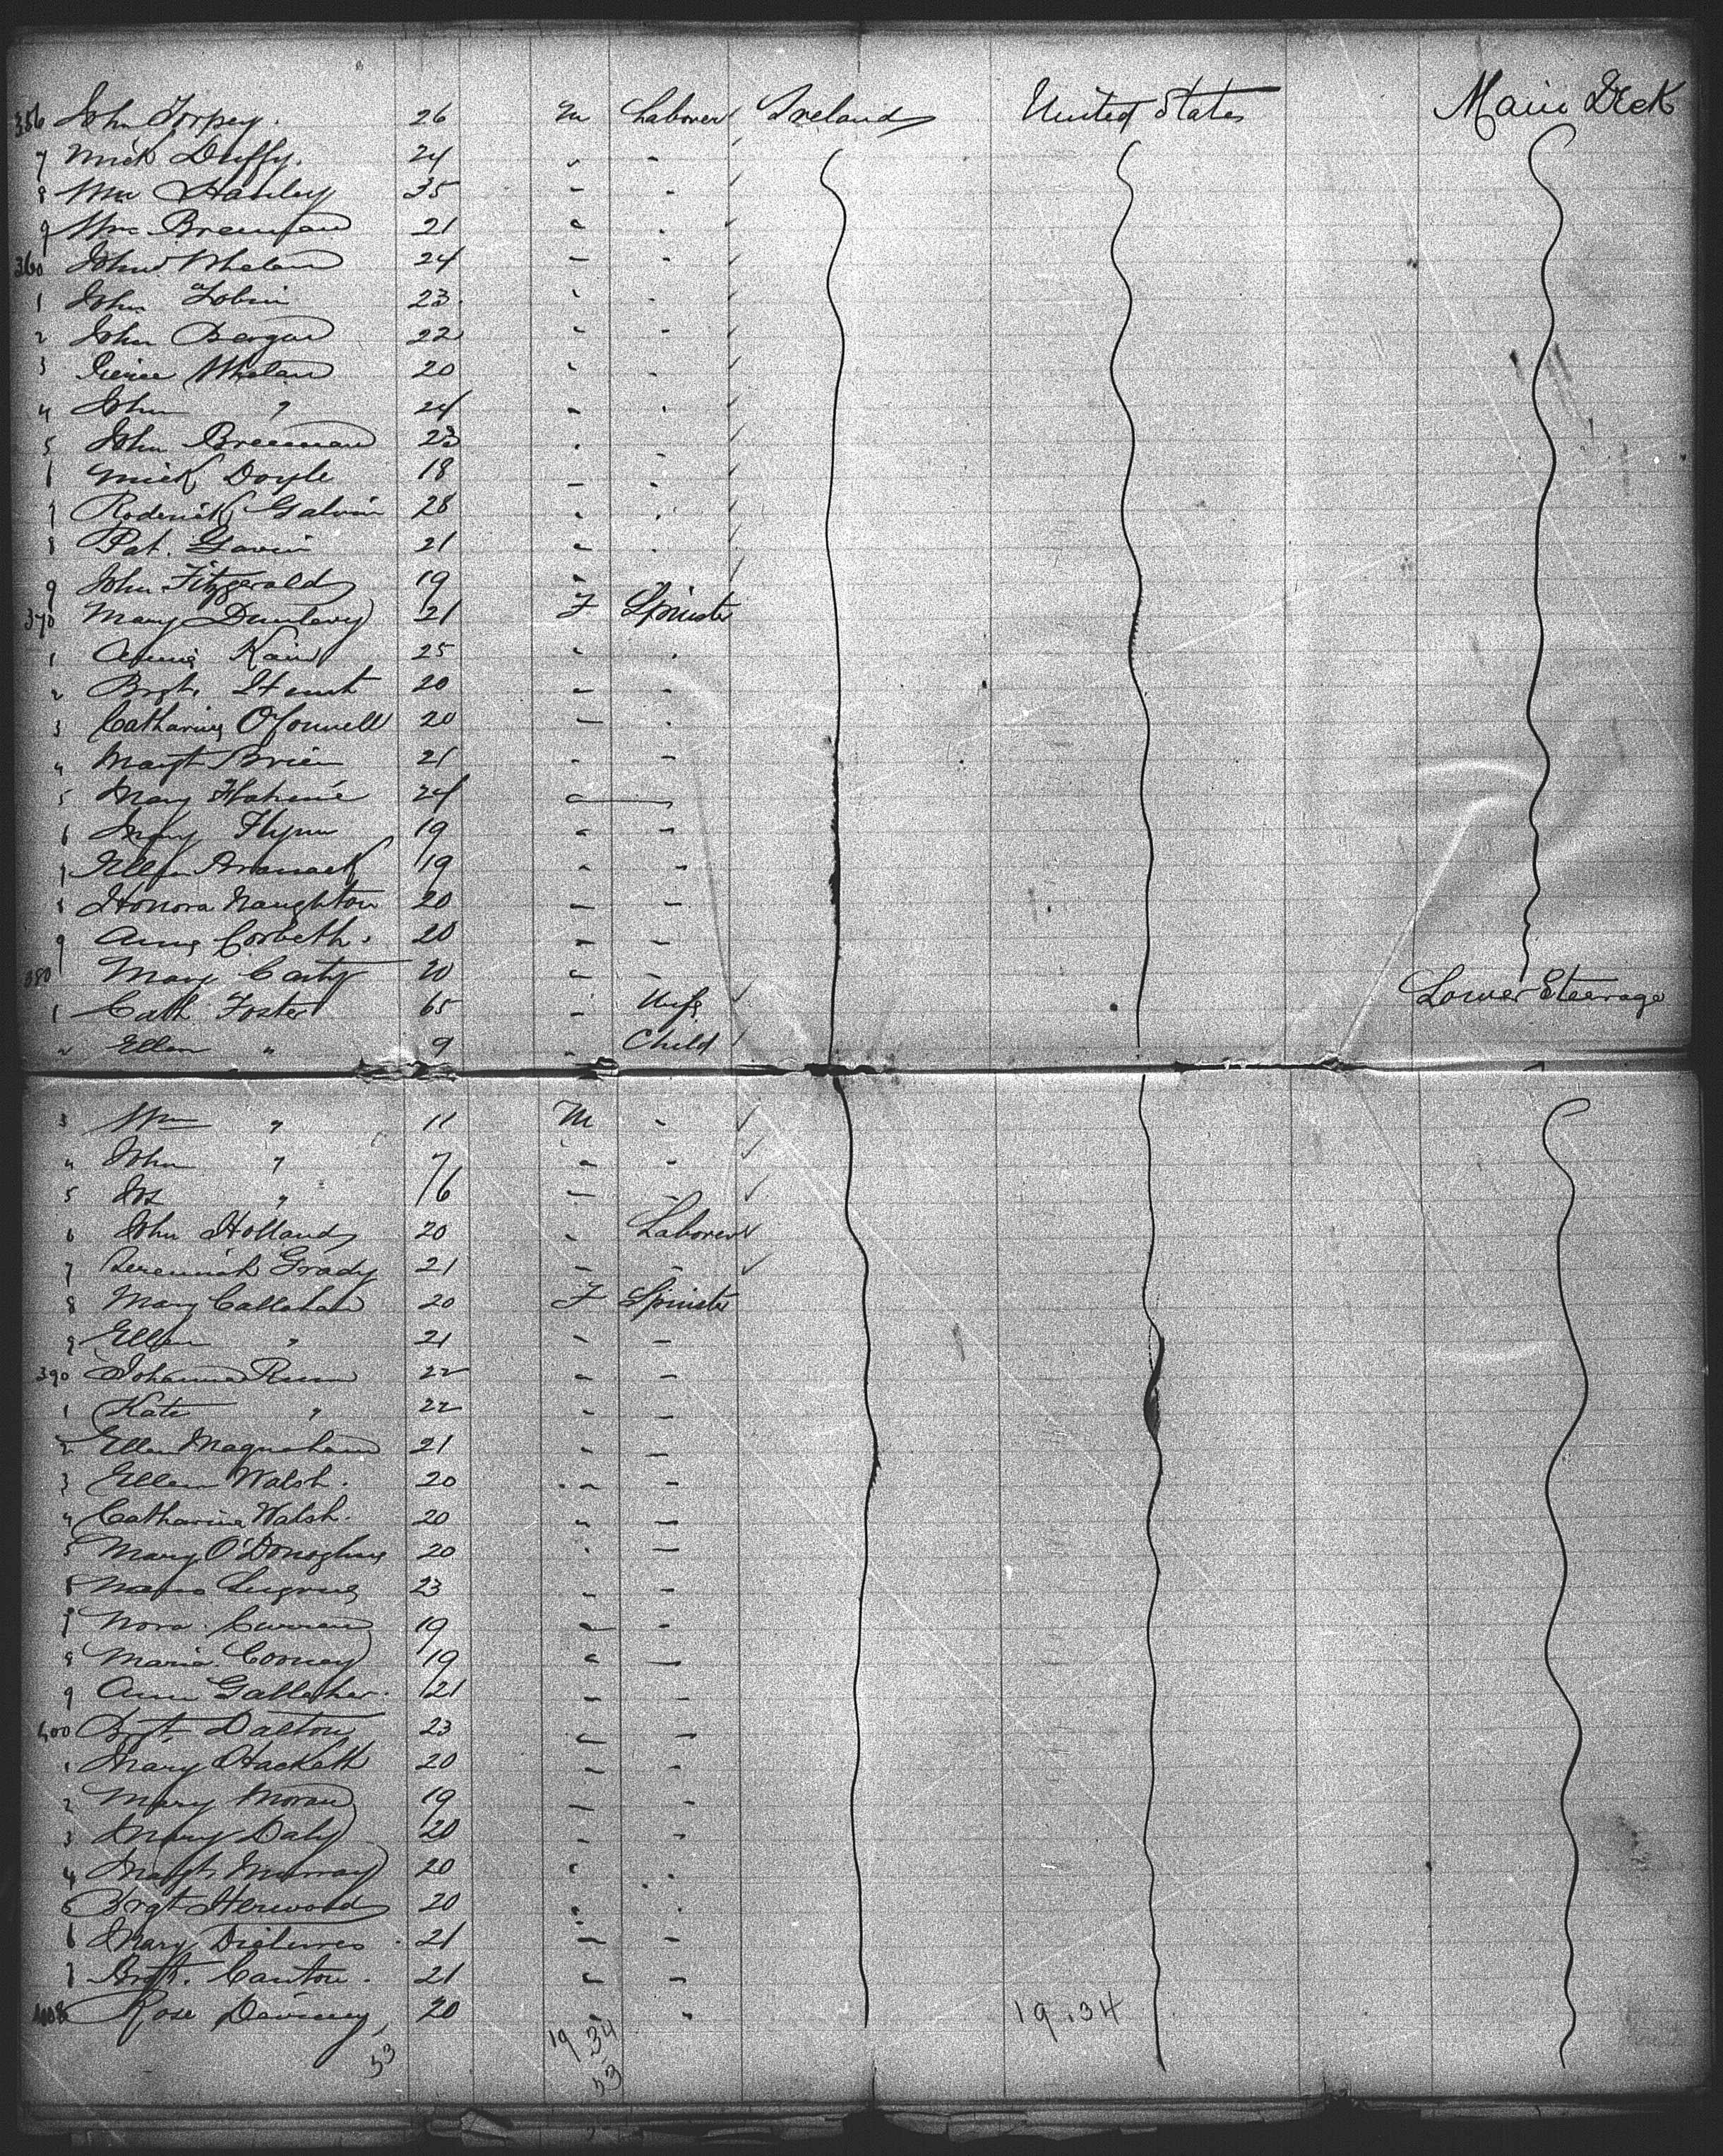 356 John Torpey. 26 M Laborer Ireland United States Main Deck
7 Mick Duffy. 24 " "
8 Wm Hanley 35 " "
9 Wm Brennan 21 " "
360 John Whelan 24 " "
1 John Tobin 23 " "
2 John Bergan 22 " "
3 Pierce Whelan 20 " "
4 John " 24 " "
5 John Brennan 23 " "
6 Mick Doyle 18 " "
7 Roderick Galvin 28 " "
8 Pat. Gavin 21 " "
9 John Fitzgerald 19 "
370 Mary Dunlavy 21 F Spinster
1 Annie Kain 25 " "
2 Brgt. 20 " "
3 Catharine O'Connell 20 " "
4 Margt Brien 21 " "
5 Mary 24 "
6 Mary Flynn 19 " "
7 Ellen 19 " "
8 Honora Naughton 20 " "
9 Anne Corbeth. 20 " "
380 Mary Carty 20 " "
1 Cath Foster 65 " Wife Lower Steerage
2 Ellen " 9 " Child
3 Wm " 11 M "
4 John " 7 " "
5 Jos " 6 " "
6 John Holland 20 " Laborer
7 Jeremiah Grady 21 " "
8 Mary Callahan 20 F Spinster
9 Ellen " 21 " "
390 Johanna 22 " "
1 Kate " 22 " "
2 Ellen 21 " "
3 Ellen Walsh. 20 " "
4 Catharine Walsh. 20 " "
5 Mary O'Donoghue 20 " "
6 23 " "
7 Nora Curran 19 " "
8 Maria Cooney 19 " "
9 Ann Gallagher. 21 " "
400 Brgt. Dalton 23 " "
1 Mary Hackett 20 " "
2 Mary Moran 19 " "
3 Mary Daly 20 " "
4 Margt. Murray 20 " "
5 Brgt Herwood 20 " "
6 Mary 21 " "
7 Brgt. Canton. 21 " "
408 Rose 20 " "
53 19 34 19.34
53